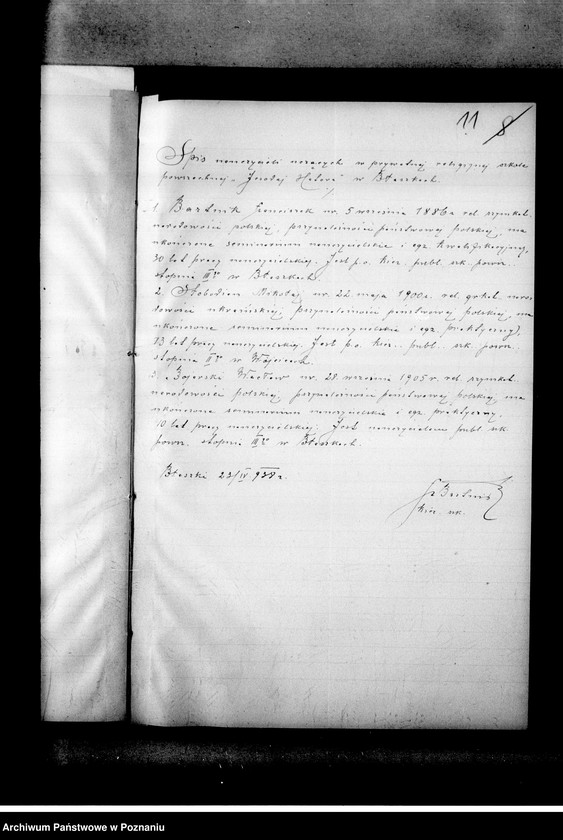 11 8
Spis nauczycieli uczących w prywatnej religijnej szkole
powszechnej „Jesodej Hatora" w Błaszkach.
1. Bartnik Franciszek ur. 5 września 1886 r. rel. rzymkat.
narodowości polskiej, przynależności państwowej polskiej, ma
ukończone seminarium nauczycielskie i egz. kwalifikacyjny,
30 lat pracy nauczycielskiej. Jest p.o. kier. publ. szk. powsz.
stopnia III° w Błaszkach.
2. Słobodian Mikołaj ur. 22 maja 1900 r. rel. grkat. naro-
dowości ukraińskiej, przynależności państwowej polskiej, ma
ukończone seminarium nauczycielskie i egz. praktyczny,
13 lat pracy nauczycielskiej. Jest p.o. kier. publ. szk. powsz.
stopnia II° w
3. Wacław ur. 28 września 1905 r. rel. rzymkat.
narodowości polskiej, przynależności państwowej polskiej, ma
ukończone seminarium nauczycielskie i egz. praktyczny,
10 lat pracy nauczycielskiej. Jest nauczycielem publ. szk.
powsz. stopnia III° w Błaszkach.
Błaszki 23/IV 938 r.
Fr Bartnik
kier. szk.
Archiwum Państwowe w Poznaniu